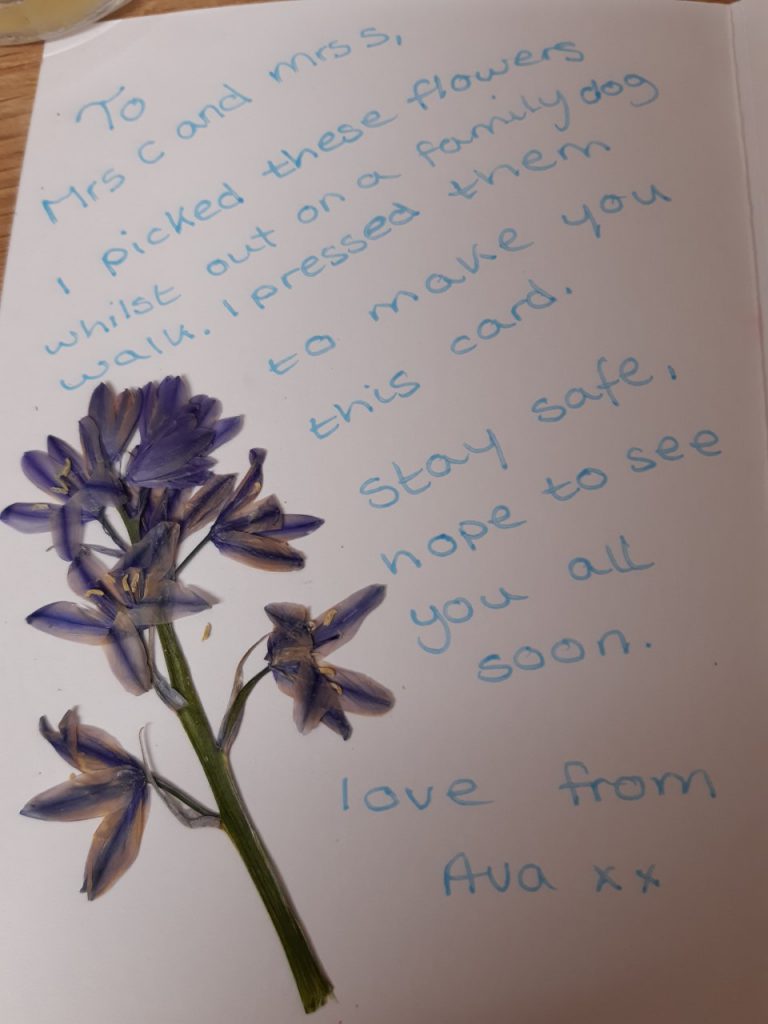 To
Mrs C and Mrs S,
I picked these flowers
whilst out on a family dog
walk. I pressed them
to make you
this card.
Stay safe,
hope to see
you all
soon.
love from
Ava xx